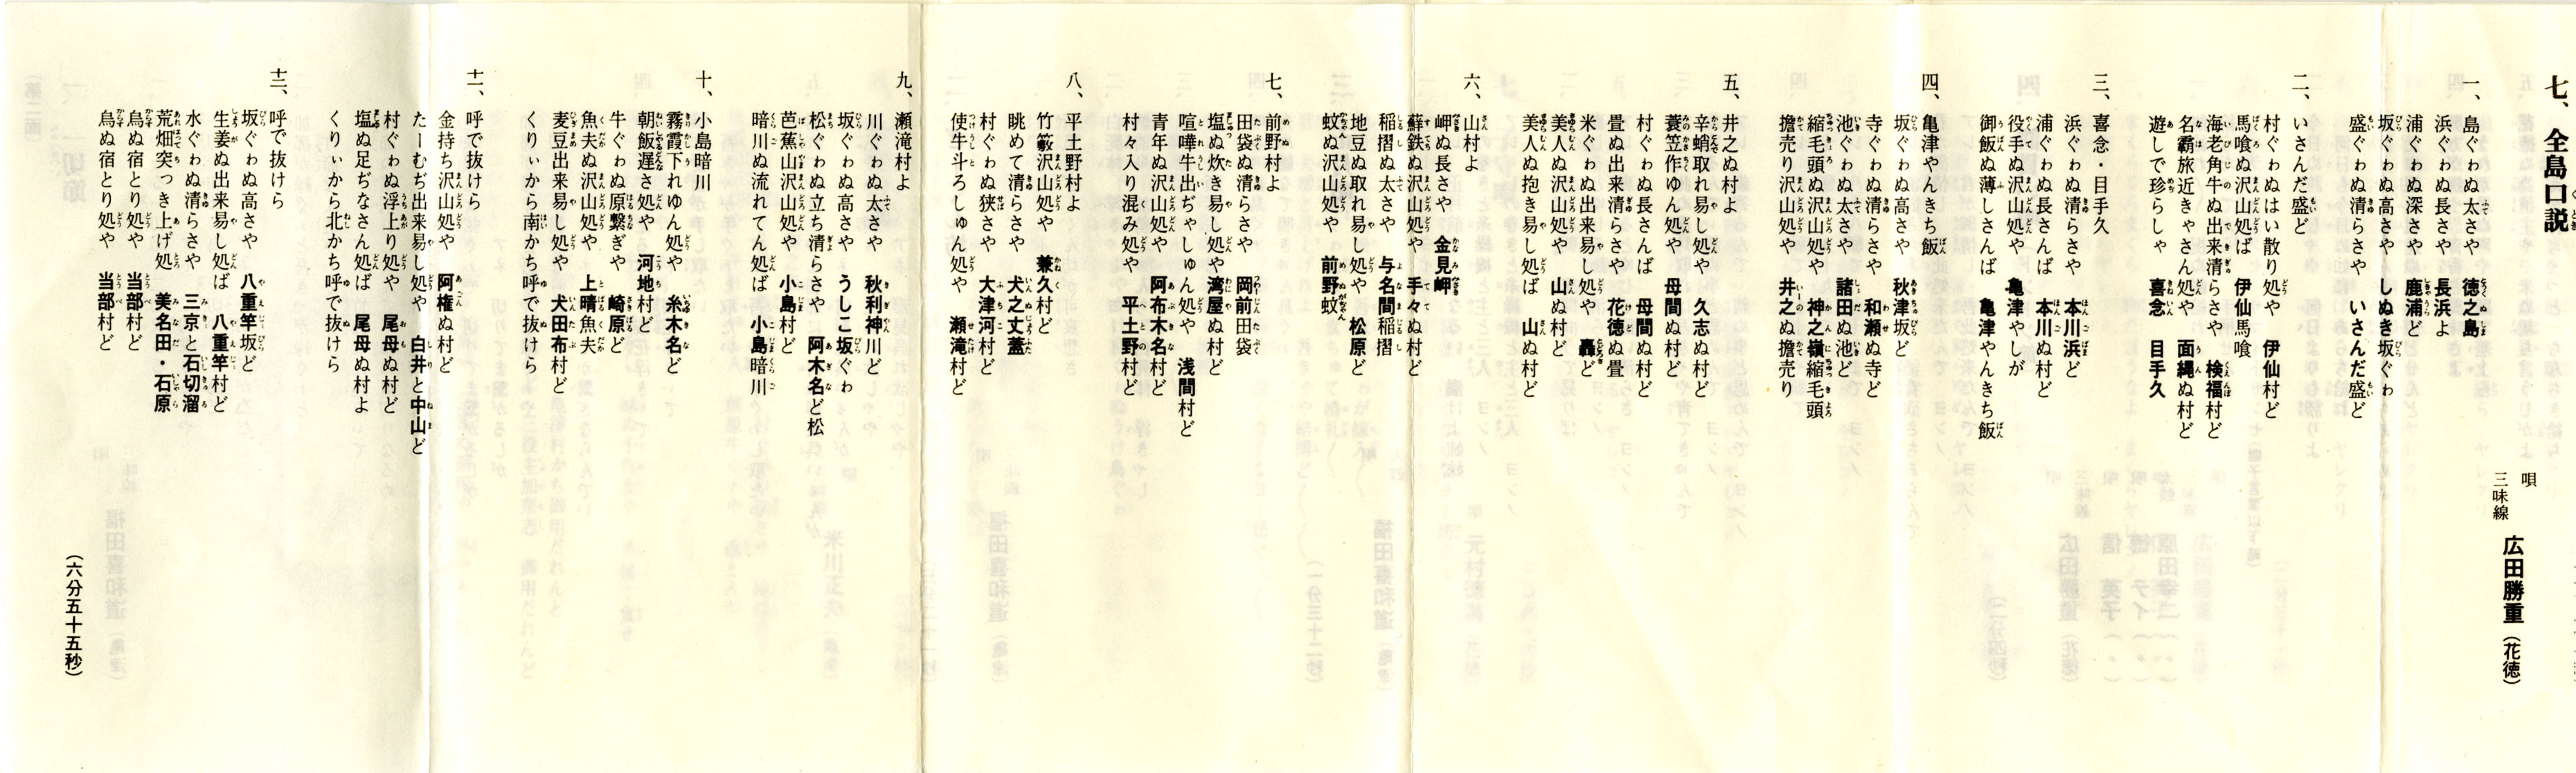 七、全島口説
唄
三味線
広田勝重(花徳)
一、
島ぐゎぬ太さや 徳之島
浜ぐゎぬ長さや 長浜よ
浦ぐゎぬ深さや 鹿浦ど
坂ぐゎぬ高さや しぬき坂ぐゎ
盛ぐゎぬ清らさや いさんだ盛ど
二、
いさんだ盛ど
村ぐゎぬはい散り処や 伊仙村ど
馬喰ぬ沢山処ば 伊仙馬喰
海老角牛ぬ出来清らさや 検福村ど
名覇旅近きゃさん処や 面縄ぬ村ど
遊しで珍らしゃ 喜念 目手久
三、
喜念・目手久
浜ぐゎぬ清らさや 本川浜ど
浦ぐゎぬ長さんば 本川ぬ村ど
役手ぬ沢山処や 亀津やしが
御飯ぬ薄しさんば 亀津やんきち飯
四、
亀津やんきち飯
坂ぐゎぬ高さや 秋津坂ど
寺ぐゎぬ清らさや 和瀬ぬ寺ど
池ぐゎぬ太さや 諸田ぬ池ど
縮毛頭ぬ沢山処や 神之嶺縮毛頭
擔売り沢山処や 井之ぬ擔売り
五、
井之ぬ村よ
辛蛸取れ易し処や 久志ぬ村ど
蓑笠作ゆん処や 母間ぬ村ど
村ぐゎぬ長さんば 母間ぬ村ど
畳ぬ出来清らさや 花徳ぬ畳
米ぐゎぬ出来易し処や 轟ど
美人ぬ沢山処や 山ぬ村ど
美人ぬ抱き易し処ば 山ぬ村ど
六、
山村よ
岬ぬ長さや 金見岬
蘇鉄ぬ沢山処や 手々ぬ村ど
稲摺ぬ太さや 与名間稲摺
地豆ぬ取れ易し処や 松原ど
蚊ぬ沢山処や 前野蚊
七、
前野村よ
田袋ぬ清らさや 岡前田袋
塩ぬ炊き易し処や 湾屋ぬ村ど
喧嘩牛出ぢゃしゅん処や 浅間村ど
青年ぬ沢山処や 阿布木名村ど
村々入り混み処や 平土野村ど
八、
平土野村よ
竹籔沢山処や 兼久村ど
眺めて清らさや 犬之丈蓋
村ぐゎぬ狭さや 大津河村ど
使牛斗ろしゅん処や 瀬滝村ど
九、
瀬滝村よ
川ぐゎぬ太さや 秋利神川ど
坂ぐゎぬ高さや うしこ坂ぐゎ
松ぐゎぬ立ち清らさや 阿木名ど松
芭蕉山沢山処や 小島村ど
暗川ぬ流れてん処ば 小島暗川
十、
小島暗川
霧霞下れゆん処や 糸木名ど
朝飯遅さ処や 河地村ど
牛ぐゎぬ原繋ぎや 崎原ど
魚夫ぬ沢山処や 上晴魚夫
麦豆出来易し処や 犬田布村ど
くりぃから南かち呼で抜けら
十一、
呼で抜けら
金持ち沢山処や 阿権ぬ村ど
たーむぢ出来易し処や 白井と中山ど
村ぐゎぬ浮上り処や 尾母ぬ村ど
塩ぬ足ぢなさん処ば 尾母ぬ村よ
くりぃから北かち呼で抜けら
十二、
呼で抜けら
坂ぐゎぬ高さや 八重竿坂ど
生姜ぬ出来易し処ば 八重竿村ど
水ぐゎぬ清らさや 三京と石切溜
荒畑突っき上げ処や 美名田・石原
烏ぬ宿とり処や 当部村ど
烏ぬ宿とり処や 当部村ど
(六分五十五秒)